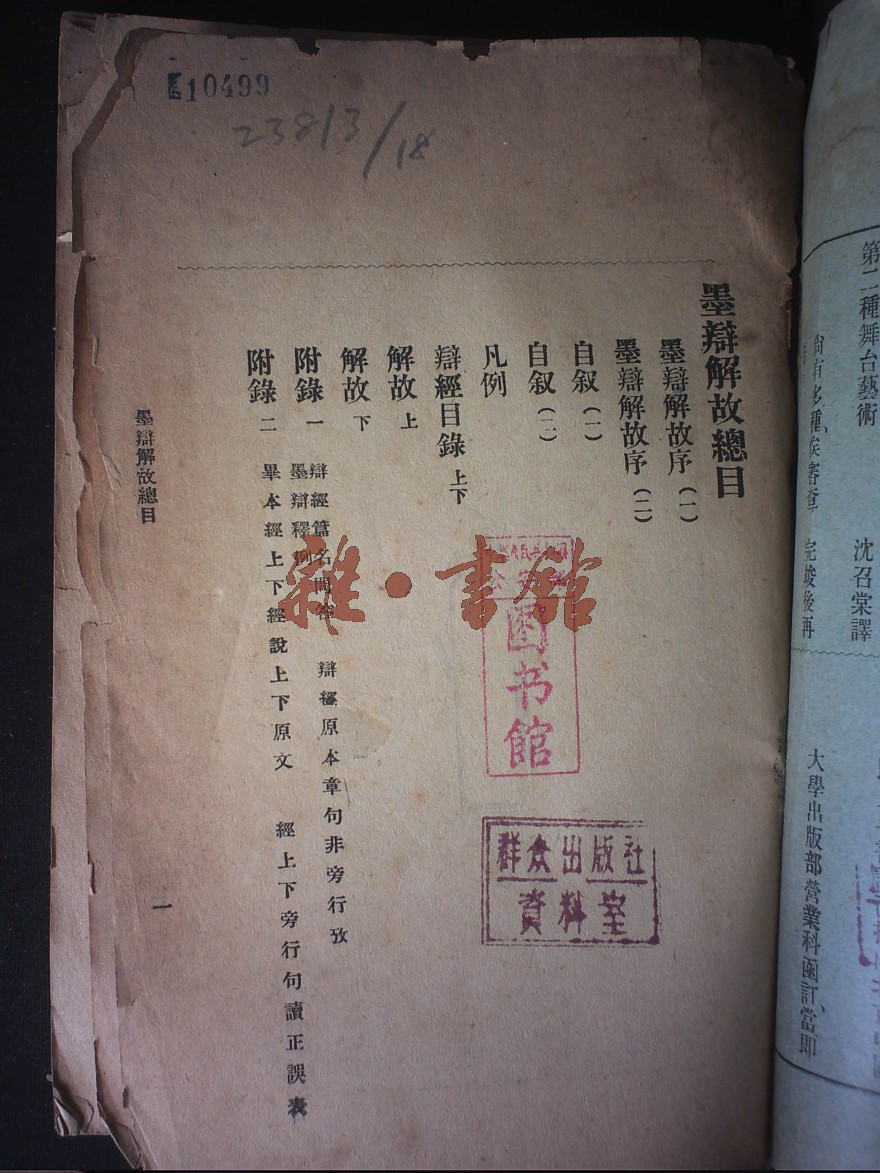 10499
23813/18
墨辯解故總目
墨辯解故序(一)
墨辯解故序(二)
自叙(一)
自叙(二)
凡例
辯經目錄 上下
解故 上
解故 下
附錄 一 辯經篇名問答 辯經原本章句非旁行攷
墨辯釋例
附錄 二 畢本經上下經說上下原文 經上下旁行句讀正誤表
墨辯解故總目
一
雜·書館
图书馆
群众出版社
資料室
第二種舞台藝術 沈召棠譯
尚有多種、俟審查 完竣後再
大學出版部營業科函訂、當即